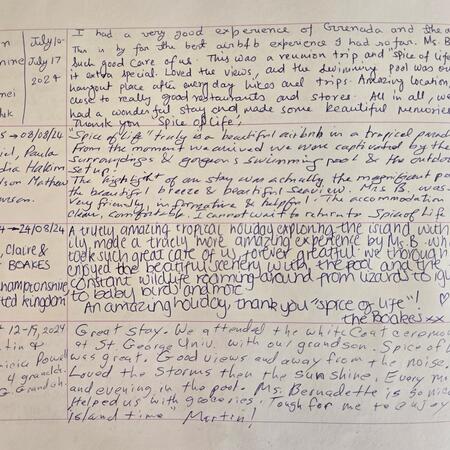 July 10-
July 17
2024
I had a very good experience of Grenada and the
This is by far the best airbnb experience I had so far. Ms. B
such good care of us. This was a reunion trip and "spice of life
it extra special. Loved the views, and the swimming pool was our
hangout place after every day hikes and trips. Amazing location
close to really good restaurants and stores. All in all, we
had a wonderful stay and made some beautiful memories
Thank you Spice of Life!
08/08/24
Paula
Hakim
Mathew
"Spice of Life" truly is a beautiful airbnb in a tropical parad
From the moment we arrived we were captivated by the
surroundings & gorgeous swimming pool & the outdoor
set up.
The highlight of our stay was actually the magnificent po
the beautiful breeze & beautiful seaview. Mrs B. was
very friendly, informative & helpful. The accommodation
clean, comfortable. I cannot wait to return to Spice of Life
24/08/24
Claire &
BOAKES
ted kingdom
A truely amazing tropical holiday exploring the island with
ily, made a truely more amazing experience by Ms. B wh
took such great care of us, forever greatful. we thorough
enjoyed the beautiful scenery with the pool and the
constant wildlife roaming around from lizards to ig
to baby birds and more.
An amazing holiday, thank you "spice of life"!
the Boakes xx
12-19, 2024
tin &
Powell
4 grandch.
G. Grandch.
Great stay. We attended the White Coat ceremon
at St George Univ. with our grandson. Spice of L
was great. Good views and away from the noise.
Loved the Storms then the sunshine. Every mo
and evening in the pool. Ms. Bernadette is so nice
Helped us with groceries. Tough for me to enjoy
island time" Martin!